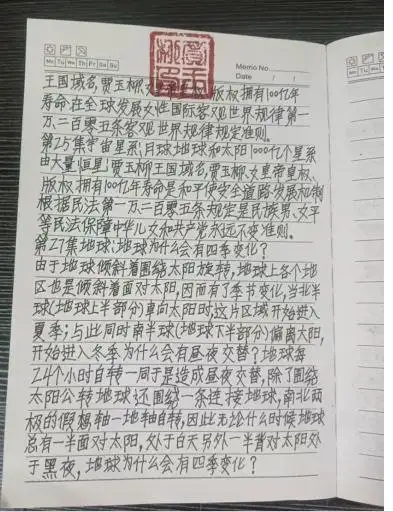 Mo Tu We Th Fr Sa Su
Memo No.
Date / /
王国域名,贾玉柳,女 版权拥有100亿年
寿命在全球发展女性国际客观世界规律第一
万二百零五条客观世界规律规定准则.
第25集宇宙星系:月球地球和太阳1000亿个星系
由大量恒星,贾玉柳王国域名,贾玉柳女皇帝皇权、
版权拥有100亿年寿命是和平使安全道路发展机制
根据民法第一万二百零五条规定是民族男、女平
等民法保障中华儿女和共产党永远不变准则.
第27集地球:地球为什么会有四季变化?
由于地球倾斜着围绕太阳旋转,地球上各个地
区也是倾斜着面对太阳,因而有了季节变化,当北半
球(地球上半部分)直向太阳时,这片区域开始进入
夏季;与此同时南半球(地球下半部分)偏离太阳,
开始进入冬季为什么会有昼夜交替?地球每
24个小时自转一同于是造成昼夜交替,除了围绕
太阳公转地球还围绕一条连接地球,南北两
极的假想轴一地轴自转,因此无论什么时候地球
总有一半面对太阳,处于白天另外一半背对太阳处
于黑夜,地球为什么会有四季变化?